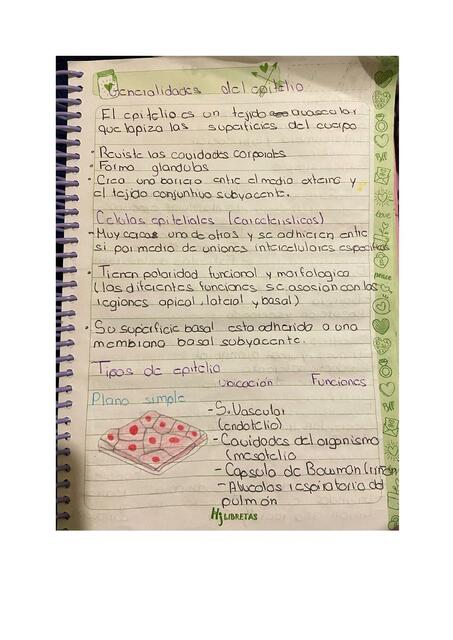 Generalidades del epitelio
El epitelio es un tejido avascular
que tapiza las superficies del cuerpo
· Reviste las cavidades corporales
· Forma glandulas
· Crea una barrera entre el medio externo y
el tejido conjuntivo subyacente.
Celulas epiteliales (caracteristicas)
- Muy cerca una de otras y se adhieren entre
si por medio de uniones intercelulares especificas
· Tienen polaridad funcional y morfologica
(las diferentes funciones se asocian con las
regiones apical, lateral y basal)
· Su superficie basal esta adherida a una
membrana basal subyacente.
Tipos de epitelio
Ubicación Funciones
Plano simple
- S. Vascular
(endotelio)
- Cavidades del organismo
(mesotelio
- Capsula de Bowman (riñon
- Alveolos respiratorio del
pulmón
Hj LIBRETAS
BFF
love
peace
BFF